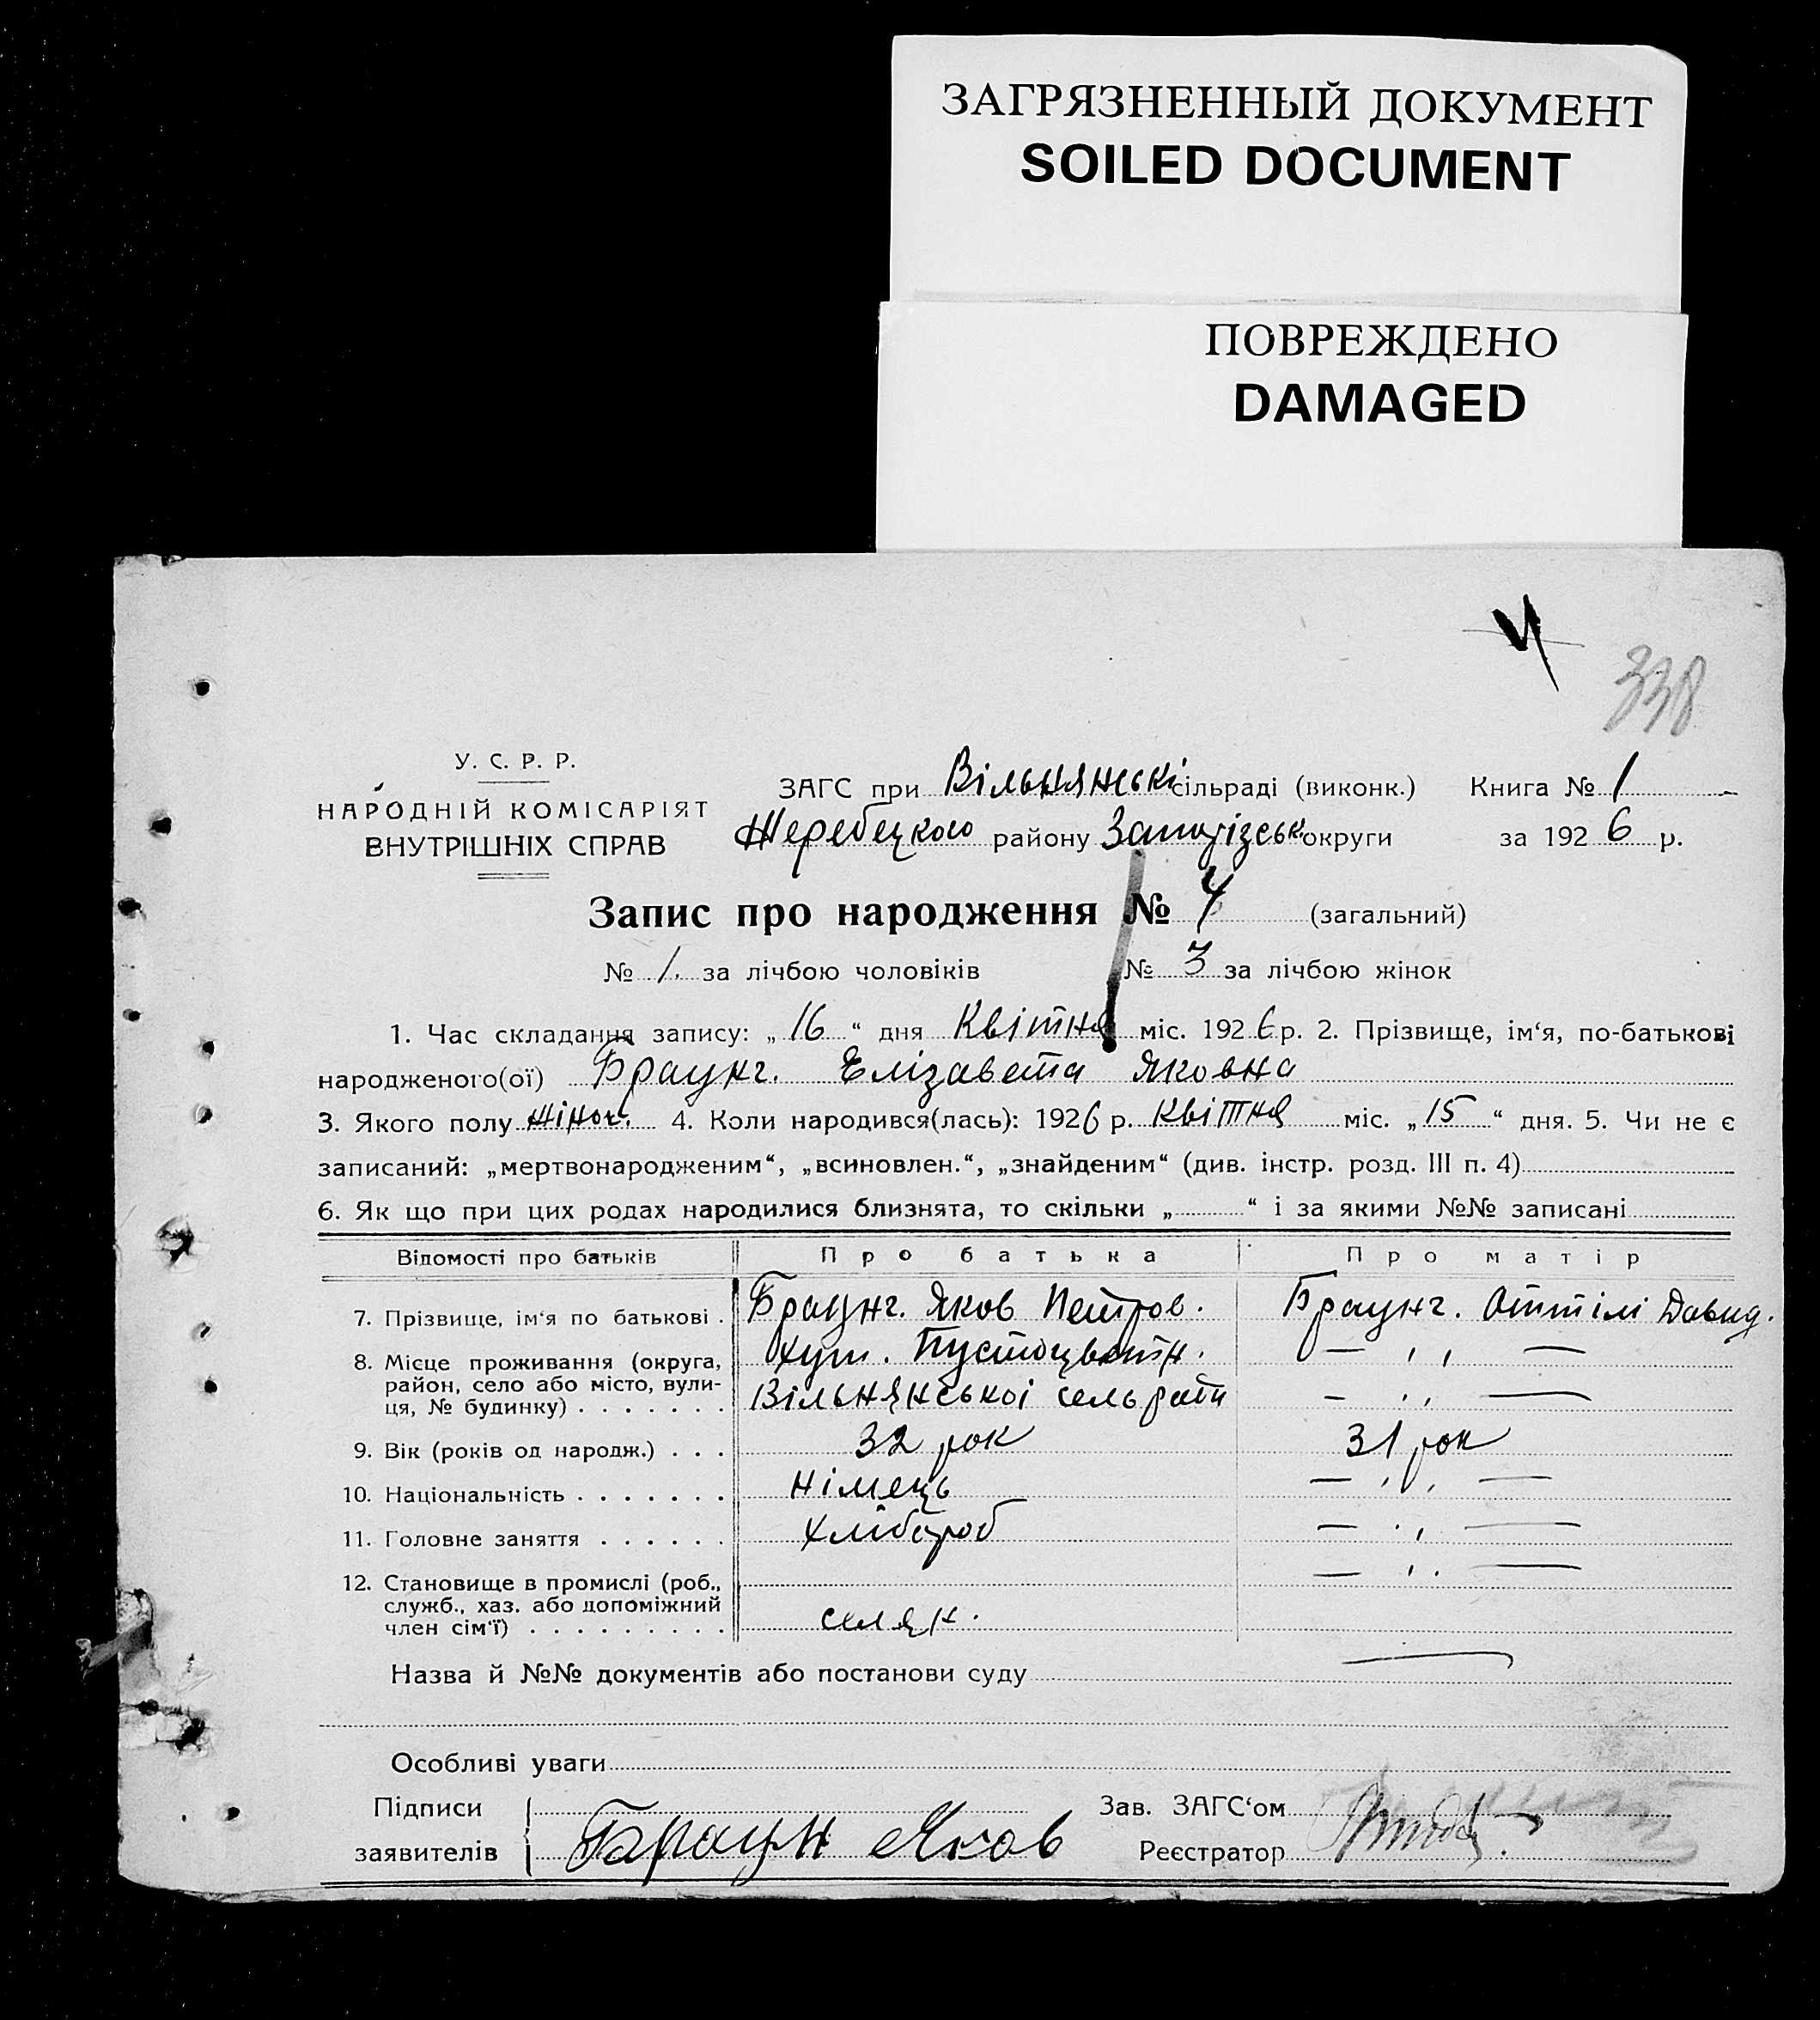 ЗАГРЯЗНЕННЫЙ ДОКУМЕНТ
SOILED DOCUMENT
ПОВРЕЖДЕНО
DAMAGED
4
338
У. С. Р. Р.
НАРОДНІЙ КОМІСАРІЯТ
ВНУТРІШНІХ СПРАВ
ЗАГС при Вільнянські сільраді (виконк.) Книга № 1
Жеребецкого району Запорізськ округи за 1926 р.
Запис про народження № 4 (загальний)
№ 1. за лічбою чоловіків № 3 за лічбою жінок
1. Час складання запису: „16“ дня Квітня міс. 1926 р. 2. Прізвище, ім‘я, по-батькові
народженого(ої) Браунг. Елізавета Яковна
3. Якого полу жіноч. 4. Коли народився(лась): 1926 р. Квітня міс. „15“ дня. 5. Чи не є
записаний: „мертвонародженим“, „всиновлен.“, „знайденим“ (див. інстр. розд. III п. 4)
6. Як що при цих родах народилися близнята, то скільки „ “ і за якими №№ записані
Відомості про батьків Про батька Про матір
7. Прізвище, ім‘я по батькові . Браунг. Яков Петров. Браунг. Оттілі Давид.
8. Місце проживання (округа, Хут. — ,, —
район, село або місто, вули-
ця, № будинку) . . . . . . . Вільнянської сельради — ,, —
9. Вік (років од народж.) . . . 32 рок 31 рок
10. Національність . . . . . . . Німець — ,, —
11. Головне заняття . . . . . . Хлібороб — ,, —
12. Становище в промислі (роб., — ,, —
служб., хаз. або допоміжний
член сім‘ї) . . . . . . . . . селян.
Назва й №№ документів або постанови суду —
Особливі уваги
Підписи Зав. ЗАГС‘ом
заявителів Браун Яков Реєстратор